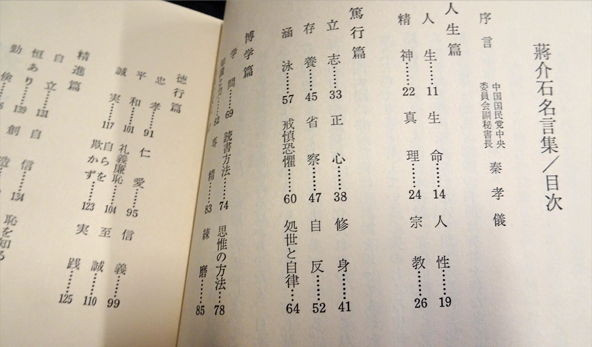 蔣介石名言集／目次
序言 中国国民党中央委員会副秘書長 秦孝儀
人生篇
人生……11 生命……14 人性……19
精神……22 真理……24 宗教……26
篤行篇
立志……33 正心……38 修身……41
存養……45 省察……47 自反……52
涵泳……57 戒慎恐懼……60 処世と自律……64
博学篇
学問……69 読書方法……74 思惟の方法……78
精……83 錬磨……85
徳行篇
忠孝……91 仁愛……95 信義……99
平和……101 礼義廉恥……104 至誠……110
誠実……117 自らを欺かず……123 実践……125
精進篇
自立……131 自信……134 恥を知る
恒あり……139 創造
勤倹